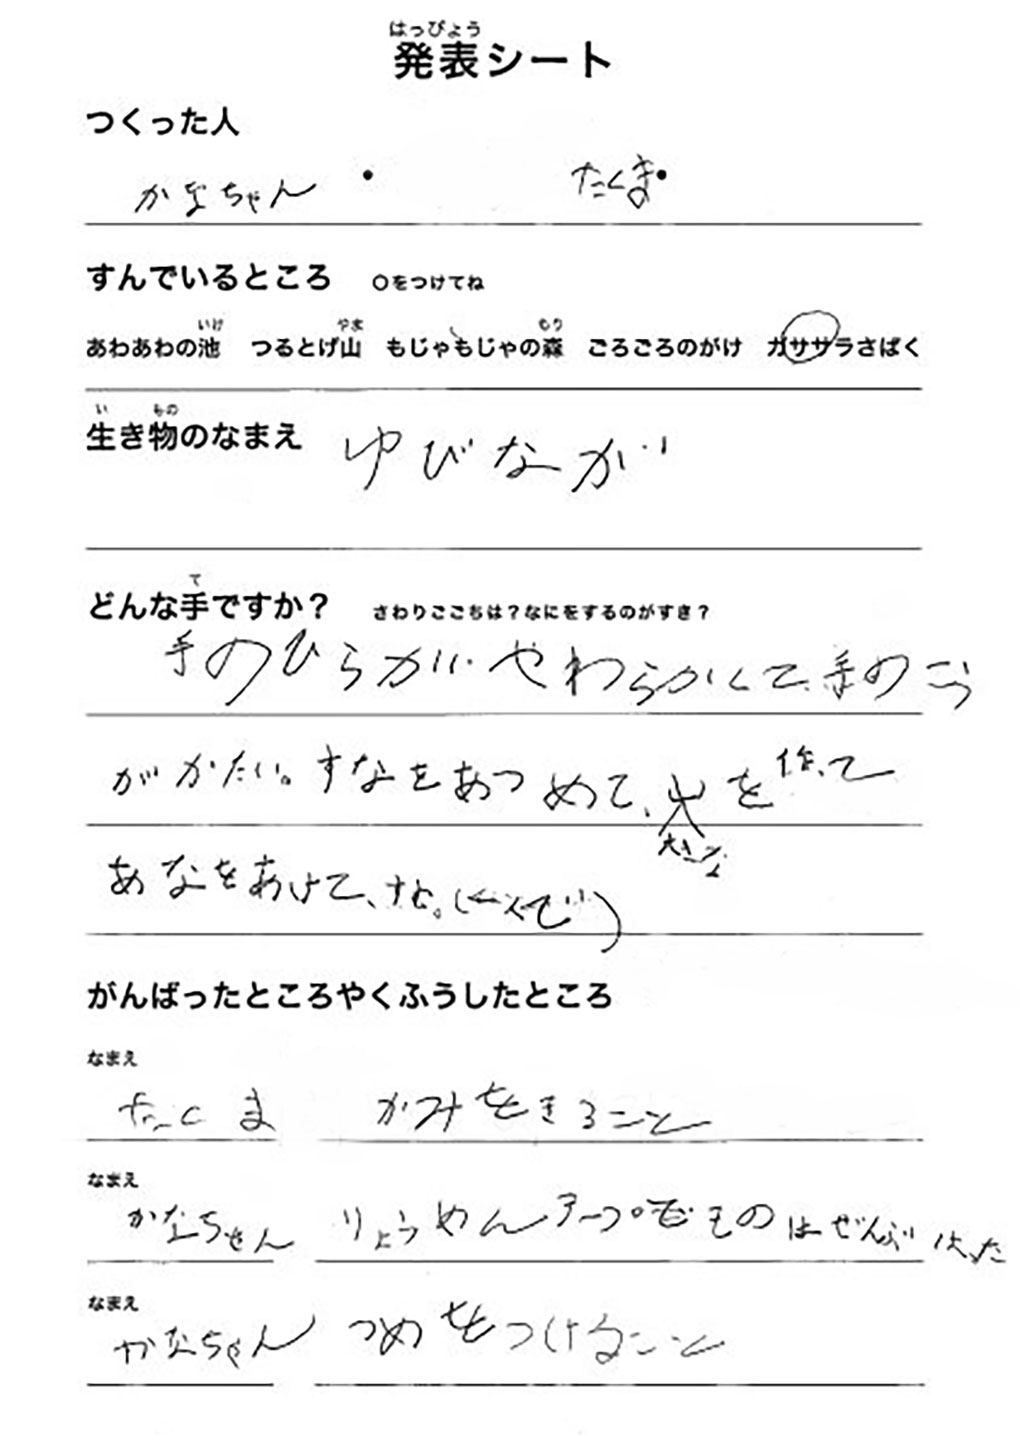 はっぴょう
発表シート
つくった人
かなちゃん ・ たくま・
すんでいるところ ○をつけてね
いけ やま もり
あわあわの池 つるとげ山 もじゃもじゃの森 ごろごろのがけ ガササラさばく
い もの
生き物のなまえ ゆびなが
て
どんな手ですか? さわりここちは?なにをするのがすき?
手のひらが、やわらかくて、手のこう
がかたい。すなをあつめて、山を作って
大きな
あなをあけて、
がんばったところやくふうしたところ
なまえ
たくま かみをきること
なまえ
かなちゃん りょうめんテープ ものはぜんぶはった
なまえ
かなちゃん つめをつけること